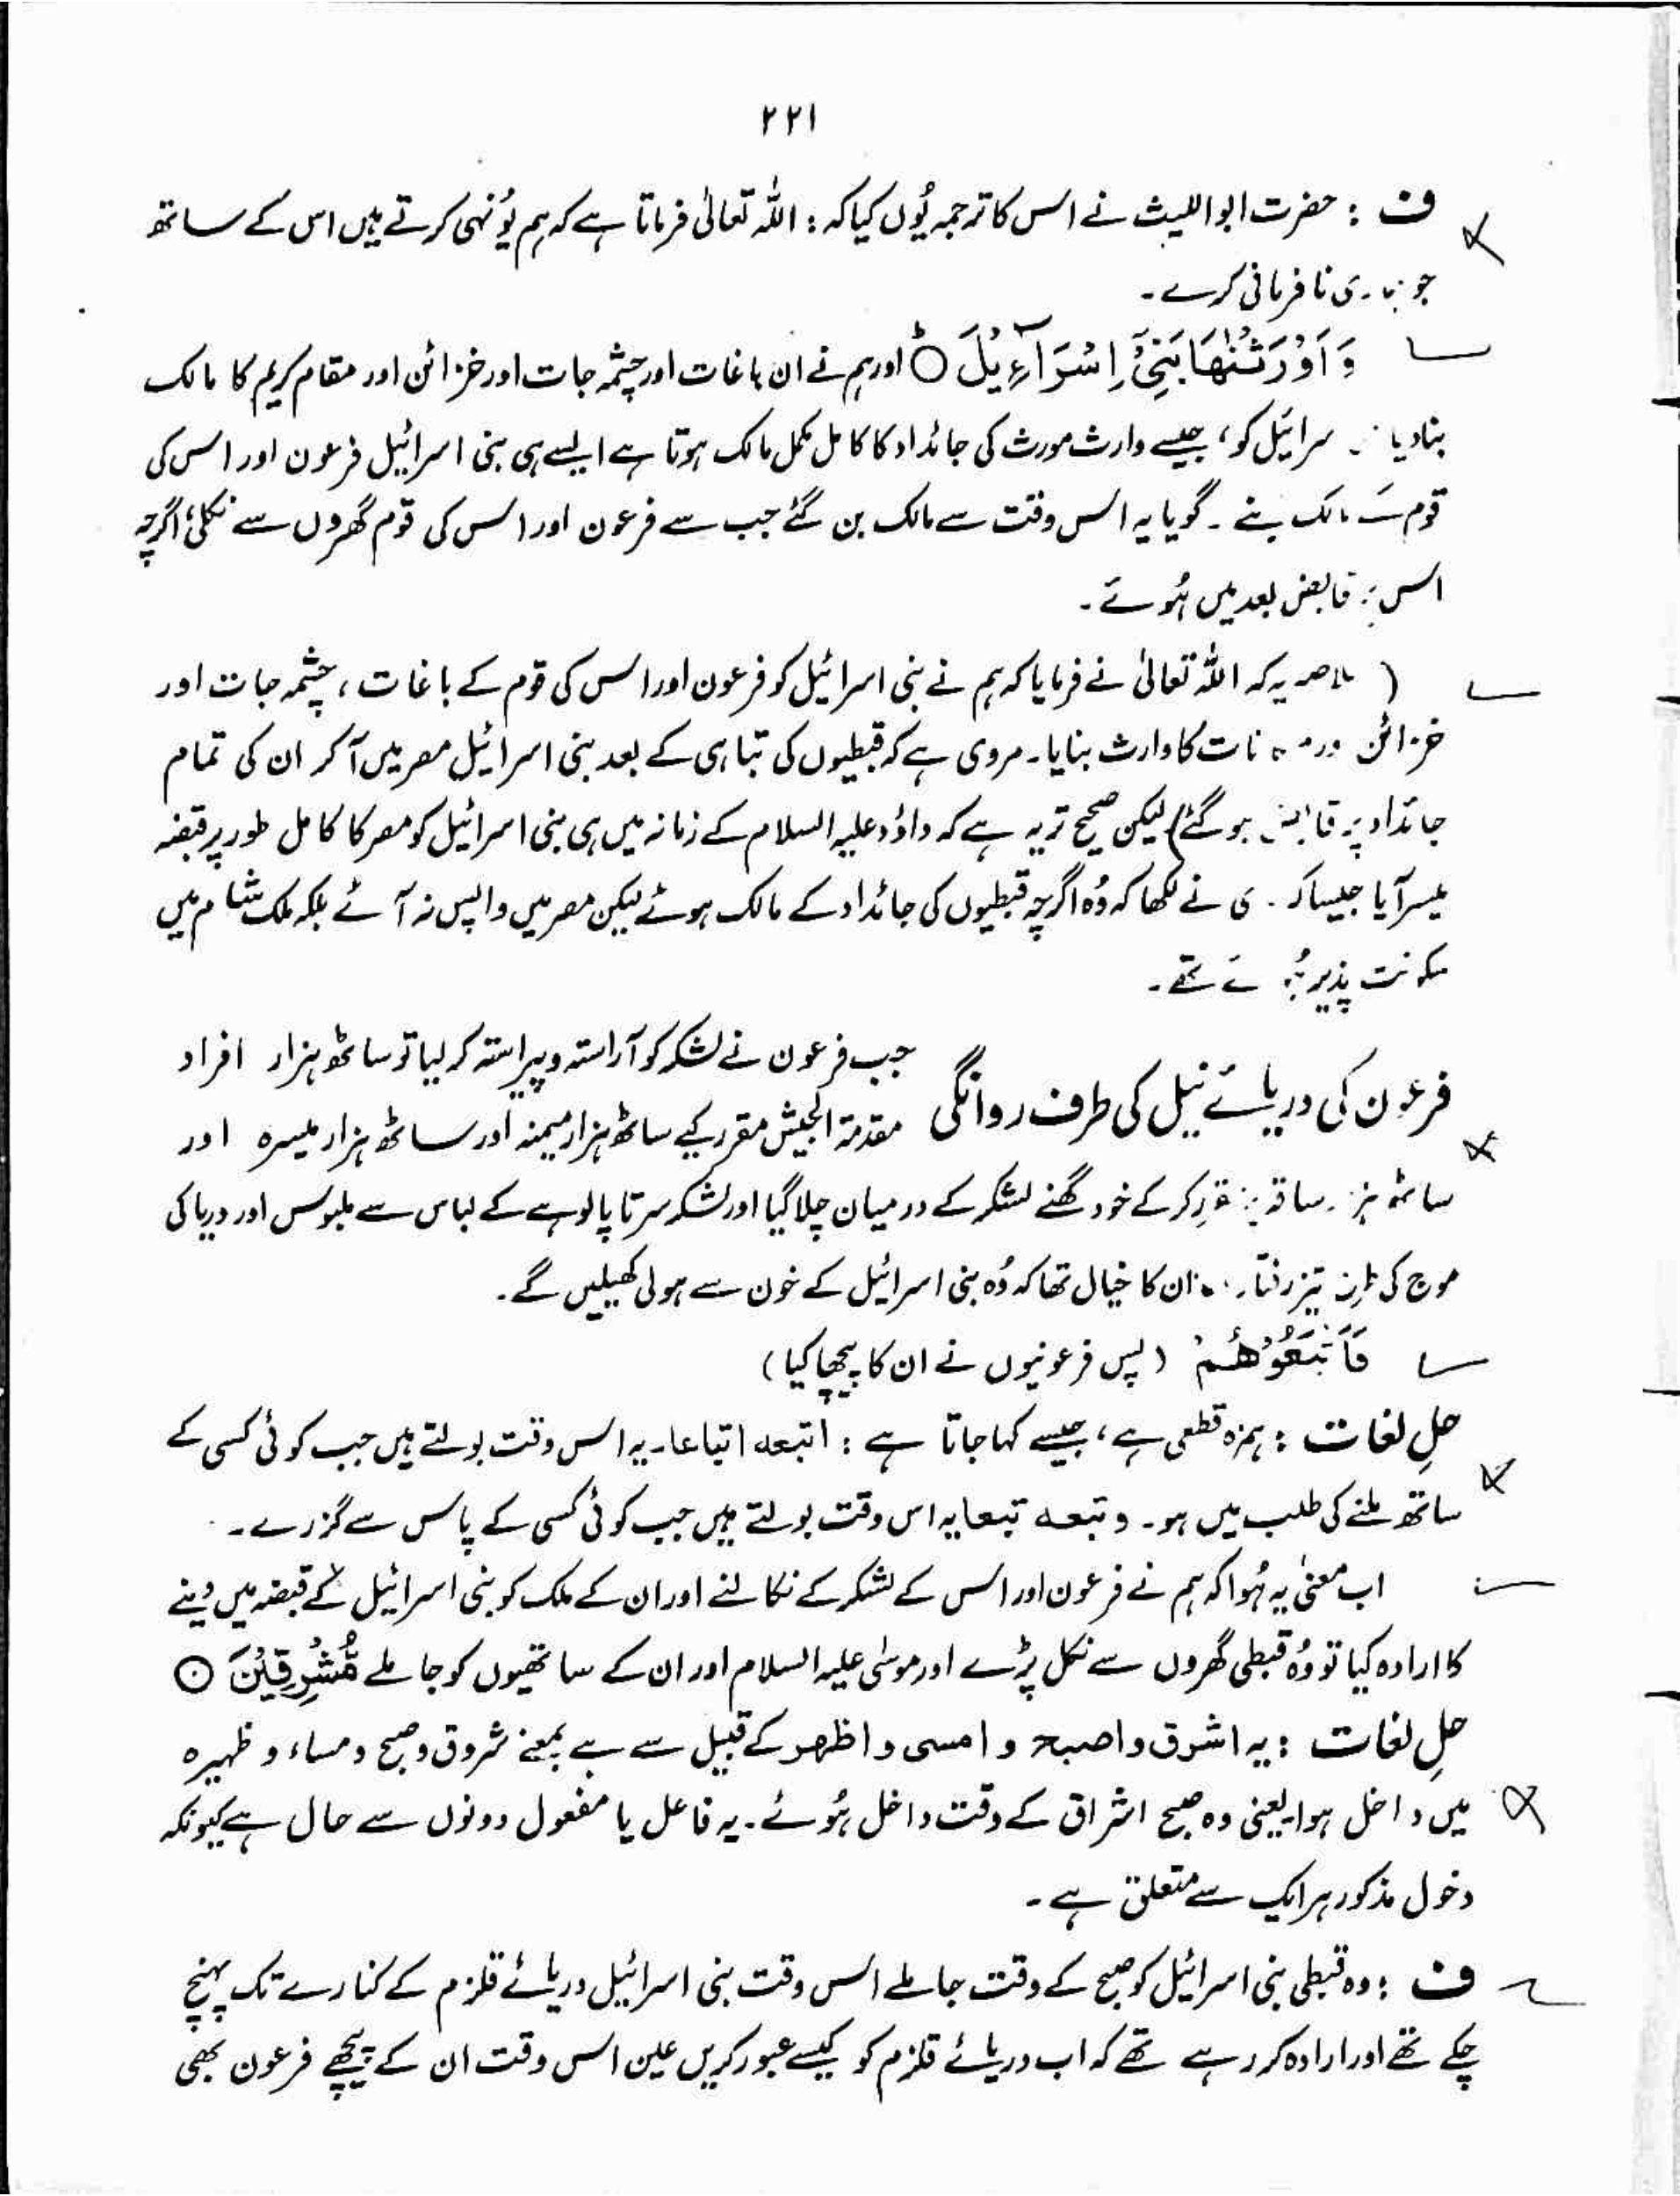 ۲۲۱
ف : حضرت ابواللیث نے اس کا ترجمہ یُوں کیا کہ : اللہ تعالیٰ فرماتا ہے کہ ہم یُونہی کرتے ہیں اس کے ساتھ
جو نافرمانی کرے۔
وَ اَوْرَثْنٰهَا بَنِیْۤ اِسْرَآءِیْلَ ○ؕ اور ہم نے ان باغات اور چشمہ جات اور خزائن اور مقام کریم کا مالک
بنا دیا سرائیل کو، جیسے وارث مورث کی جائداد کا کامل مکمل مالک ہوتا ہے ایسے ہی بنی اسرائیل فرعون اور اس کی
قوم کے مالک بنے ۔ گویا یہ اس وقت سے مالک بن گئے جب سے فرعون اور اس کی قوم گھروں سے نکلی، اگرچہ
اس قابض بعد میں ہُوئے ۔
( یہ کہ اللہ تعالیٰ نے فرمایا کہ ہم نے بنی اسرائیل کو فرعون اور اس کی قوم کے باغات ، چشمہ جات اور
خزائن کا وارث بنایا ۔ مروی ہے کہ قبطیوں کی تباہی کے بعد بنی اسرائیل مصر میں آ کر ان کی تمام
جائداد پہ قابض ہو گئے) لیکن صحیح تر یہ ہے کہ داؤد علیہ السلام کے زمانہ میں ہی بنی اسرائیل کو مصر کا کامل طور پر قبضہ
میسر آیا جیسا کہ نے لکھا کہ وُہ اگرچہ قبطیوں کی جائداد کے مالک ہوئے لیکن مصر میں واپس نہ آئے بلکہ ملک شام میں
سکونت پذیر تھے ۔
فرعون کی دریائے نیل کی طرف روانگی جب فرعون نے لشکر کو آراستہ و پیراستہ کر لیا تو ساٹھ ہزار افراد
مقدمۃ الجیش مقرر کیے ساٹھ ہزار میمنہ اور ساٹھ ہزار میسرہ اور
ساٹھ ساقہ کر کے خود گھنے لشکر کے درمیان چلا گیا اور لشکر سر تا پا لوہے کے لباس سے ملبوس اور دریا کی
موج کی تیز رفتار ان کا خیال تھا کہ وُہ بنی اسرائیل کے خون سے ہولی کھیلیں گے ۔
فَاَتْبَعُوْهُمْ (پس فرعونیوں نے ان کا پیچھا کیا)
حلِ لغات : ہمزہ قطعی ہے، جیسے کہا جاتا ہے : اتبعہ اتباعا ۔ یہ اس وقت بولتے ہیں جب کوئی کسی کے
ساتھ ملنے کی طلب میں ہو ۔ و تبعہ تبعا یہ اس وقت بولتے ہیں جب کوئی کسی کے پاس سے گزرے ۔
اب معنیٰ یہ ہُوا کہ ہم نے فرعون اور اس کے لشکر کے نکالنے اور ان کے ملک کو بنی اسرائیل کے قبضہ میں دینے
کا ارادہ کیا تو وُہ قبطی گھروں سے نکل پڑے اور موسٰی علیہ السلام اور ان کے ساتھیوں کو جا ملے مُّشْرِقِیْنَ ○
حلِ لغات : یہ اشرق و اصبح و امسی و اظھر کے قبیل سے ہے بمعنے شروق و صبح و مساء و ظہیرہ
میں داخل ہوا یعنی وہ صبح اشراق کے وقت داخل ہُوئے ۔ یہ فاعل یا مفعول دونوں سے حال ہے کیونکہ
دخول مذکور ہر ایک سے متعلق ہے ۔
ف : وہ قبطی بنی اسرائیل کو صبح کے وقت جا ملے اس وقت بنی اسرائیل دریائے قلزم کے کنارے تک پہنچ
چکے تھے اور ارادہ کر رہے تھے کہ اب دریائے قلزم کو کیسے عبور کریں عین اس وقت ان کے پیچھے فرعون بھی